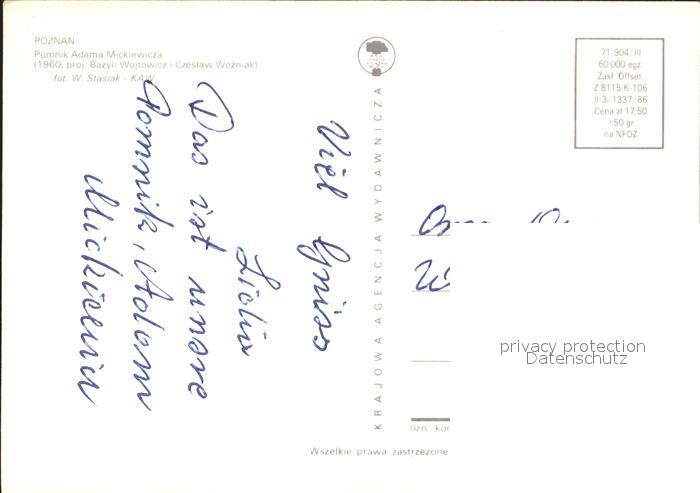 POZNAŃ
Pomnik Adama Mickiewicza
(1960, proj. Bazyli Wojtowicz i Czesław Woźniak)
fot. W. Stasiak - KAW
Viel Grüss
Das ist unsere
Pomnik, Adam
Mickiewicz
KRAJOWA AGENCJA WYDAWNICZA
71-904/III
60 000 egz.
Zakł. Offset.
Z 8115 K-106
II-3/1337/86
Cena zł 17,50
+50 gr
na NFOZ
privacy protection
Datenschutz
ozn. kod
Wszelkie prawa zastrzeżone